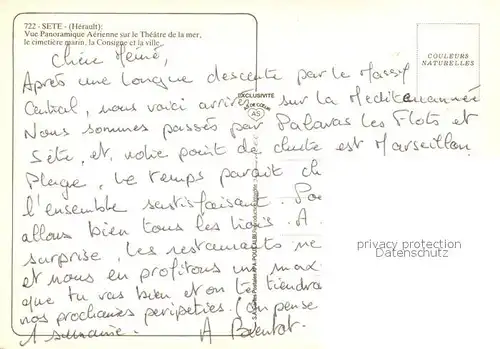 722 - SETE - (Hérault);
Vue Panoramique Aérienne sur le Théâtre de la mer,
le cimetière marin, la Consigne et la ville.
COULEURS
NATURELLES
Chère Mémé,
Après une longue descente par le Massif
Central, nous voici arrivés sur la Mediterannée
Nous sommes passés par Palavas les Flots et
Sète, et notre point de chute est Marseillan
Plage, Le temps parait ch
l'ensemble satisfaisant.
allons bien tous les trois. A
surprise, les restaurants ne
et nous en profitons un max
que tu vas bien et on te tiendra
nos prochaines peripeties. (on pense
1 semaine.
A Bientot.
EXCLUSIVITÉ
AS
privacy protection
Datenschutz